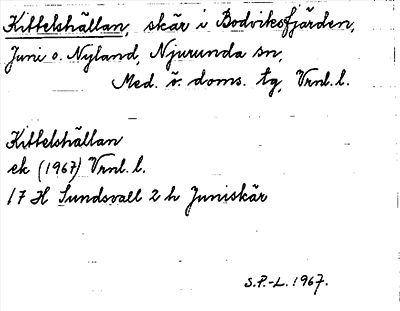 Kittelshällan, skär i Bodviksfjärden,
Juni o. Nyland, Njurunda sn,
Med. v. doms. tg, Vrnl. l.
Kittelshällan
ek (1967) Vrnl. l.
17 H Sundsvall 2 h Juniskär
S.P.-L. 1967.